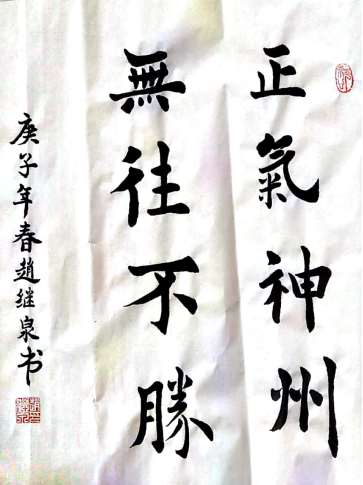 正氣神州
無往不勝
庚子年春趙继泉书